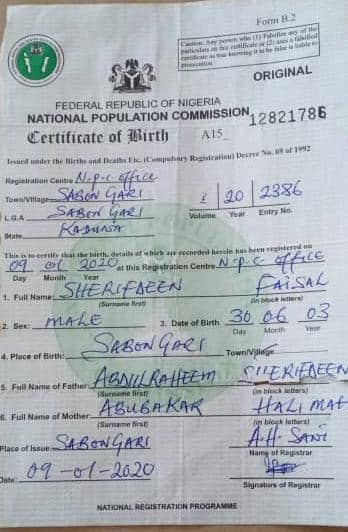 Form B.2
Caution: Any person who (1) Falsifies any of the
particulars on this certificate or (2) uses a falsified
certificate as true knowing it to be false is liable to
prosecution
ORIGINAL
FEDERAL REPUBLIC OF NIGERIA
NATIONAL POPULATION COMMISSION
Certificate of Birth A15 12821786
Issued under the Births and Deaths Etc. (Compulsory Registration) Decree No. 69 of 1992
Registration Centre N.P.C OFFICE
Town/Village SABON GARI
L.G.A SABON GARI
State KADUNA
1 20 2386
Volume Year Entry No.
This is to certify that the birth, details of which are recorded herein has been registered on
09 01 2020 at this Registration Centre N.P.C OFFICE
Day Month Year
1. Full Name: SHERIFDEEN FAISAL
(Surname first) (in block letters)
2. Sex: MALE 3. Date of Birth 30 06 03
Day Month Year
4. Place of Birth: SABON GARI Town/Village
5. Full Name of Father: ABDULRAHEEM SHERIFDEEN
(Surname first) (in block letters)
6. Full Name of Mother: ABUBAKAR HALIMAT
(Surname first) (in block letters)
Place of Issue: SABON GARI A.H. SANI
Name of Registrar
Date: 09-01-2020
Signature of Registrar
NATIONAL REGISTRATION PROGRAMME